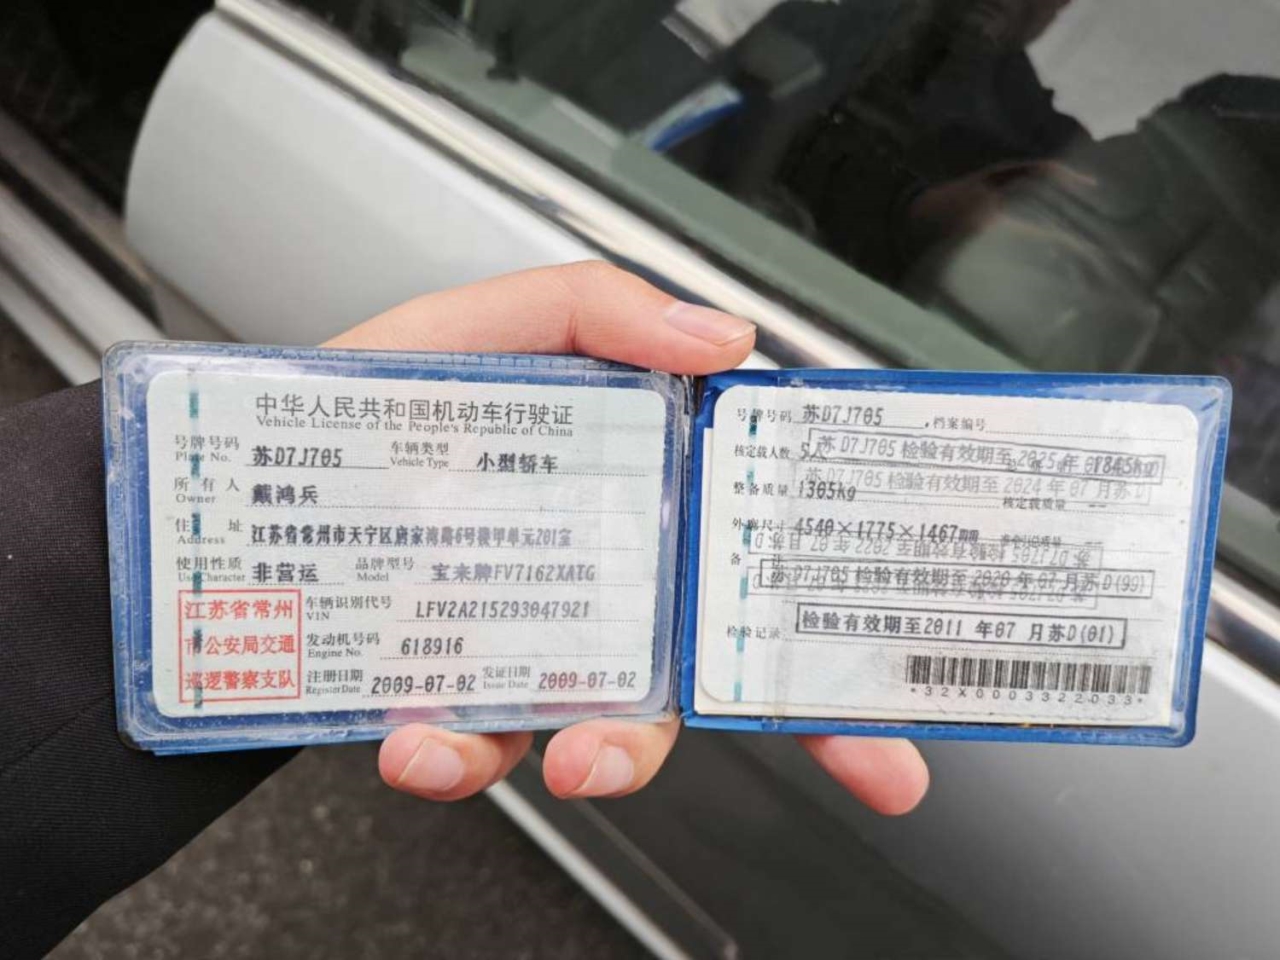 中华人民共和国机动车行驶证
Vehicle License of the People's Republic of China
号牌号码 苏D7J705 车辆类型 小型轿车
Plate No. Vehicle Type
所有人 戴鸿兵
Owner
住址 江苏省常州市天宁区唐家湾路6号 甲单元201室
Address
使用性质 非营运 品牌型号 宝来牌FV7162XATG
Use Character Model
江苏省常州
市公安局交通
巡逻警察支队
车辆识别代号 LFV2A215293047921
VIN
发动机号码 618916
Engine No.
注册日期 2009-07-02 发证日期 2009-07-02
Register Date Issue Date
号牌号码 苏D7J705 档案编号
核定载人数 5人 1845kg
苏D7J705 检验有效期至2025年
苏D7J705 检验有效期至2024年07月苏D
整备质量 1305kg 核定载质量 --
外廓尺寸 4540×1775×1467mm --
备注
苏D7J705 检验有效期至2020年07月苏D(99)
检验记录 检验有效期至2011 年07 月苏D(01)
*32X0003322033*